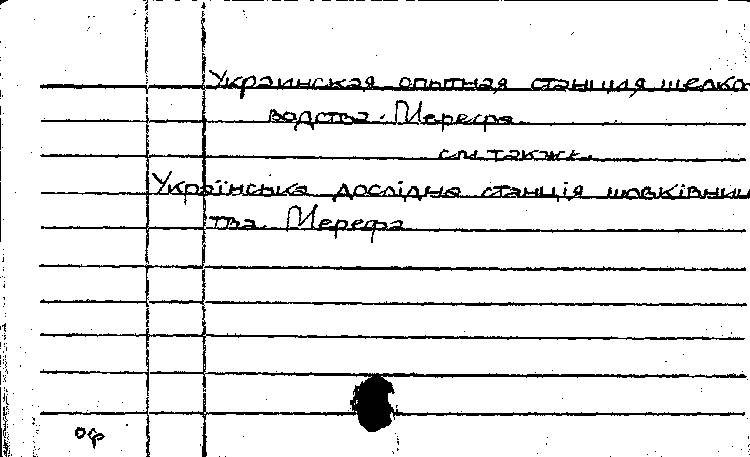 Украинская опытная станция шелко
водства. Мерефа.
см. также.
Українська дослідна станція шовківниц
тва. Мерефа
оф